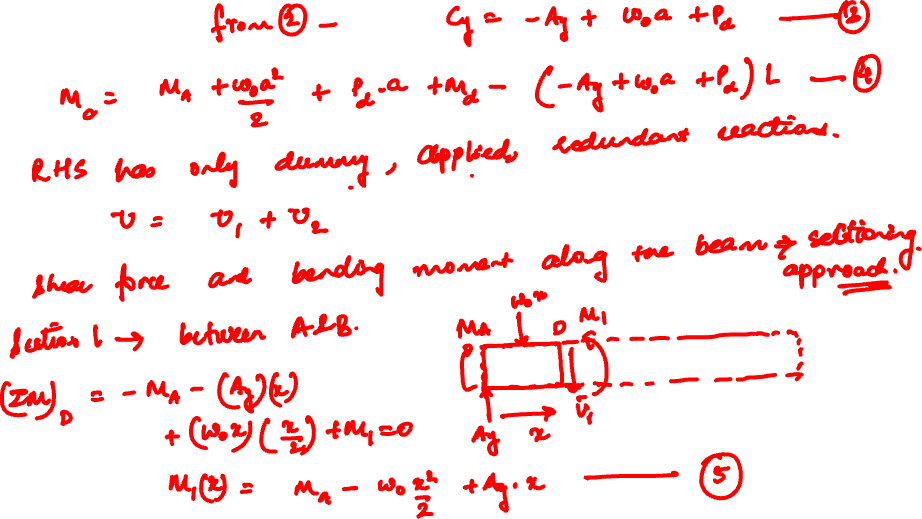 from ② – Cy = -Ay + w₀a + Pd —— ③
Mc = MA + w₀a²/2 + Pd.a + Md – (-Ay + w₀a + Pd) L — ④
RHS has only dummy, applied, redundant reactions.
v = v₁ + v₂
Shear force and bending moment along the beam → sectioning
approach.
Section 1 → between A & B.
w₀x
MA D M₁
(ΣM)D = - MA – (Ay)(x)
+ (w₀x)(x/2) + M₁ = 0
Ay x V₁
M₁(x) = MA – w₀ x²/2 + Ay.x —— ⑤